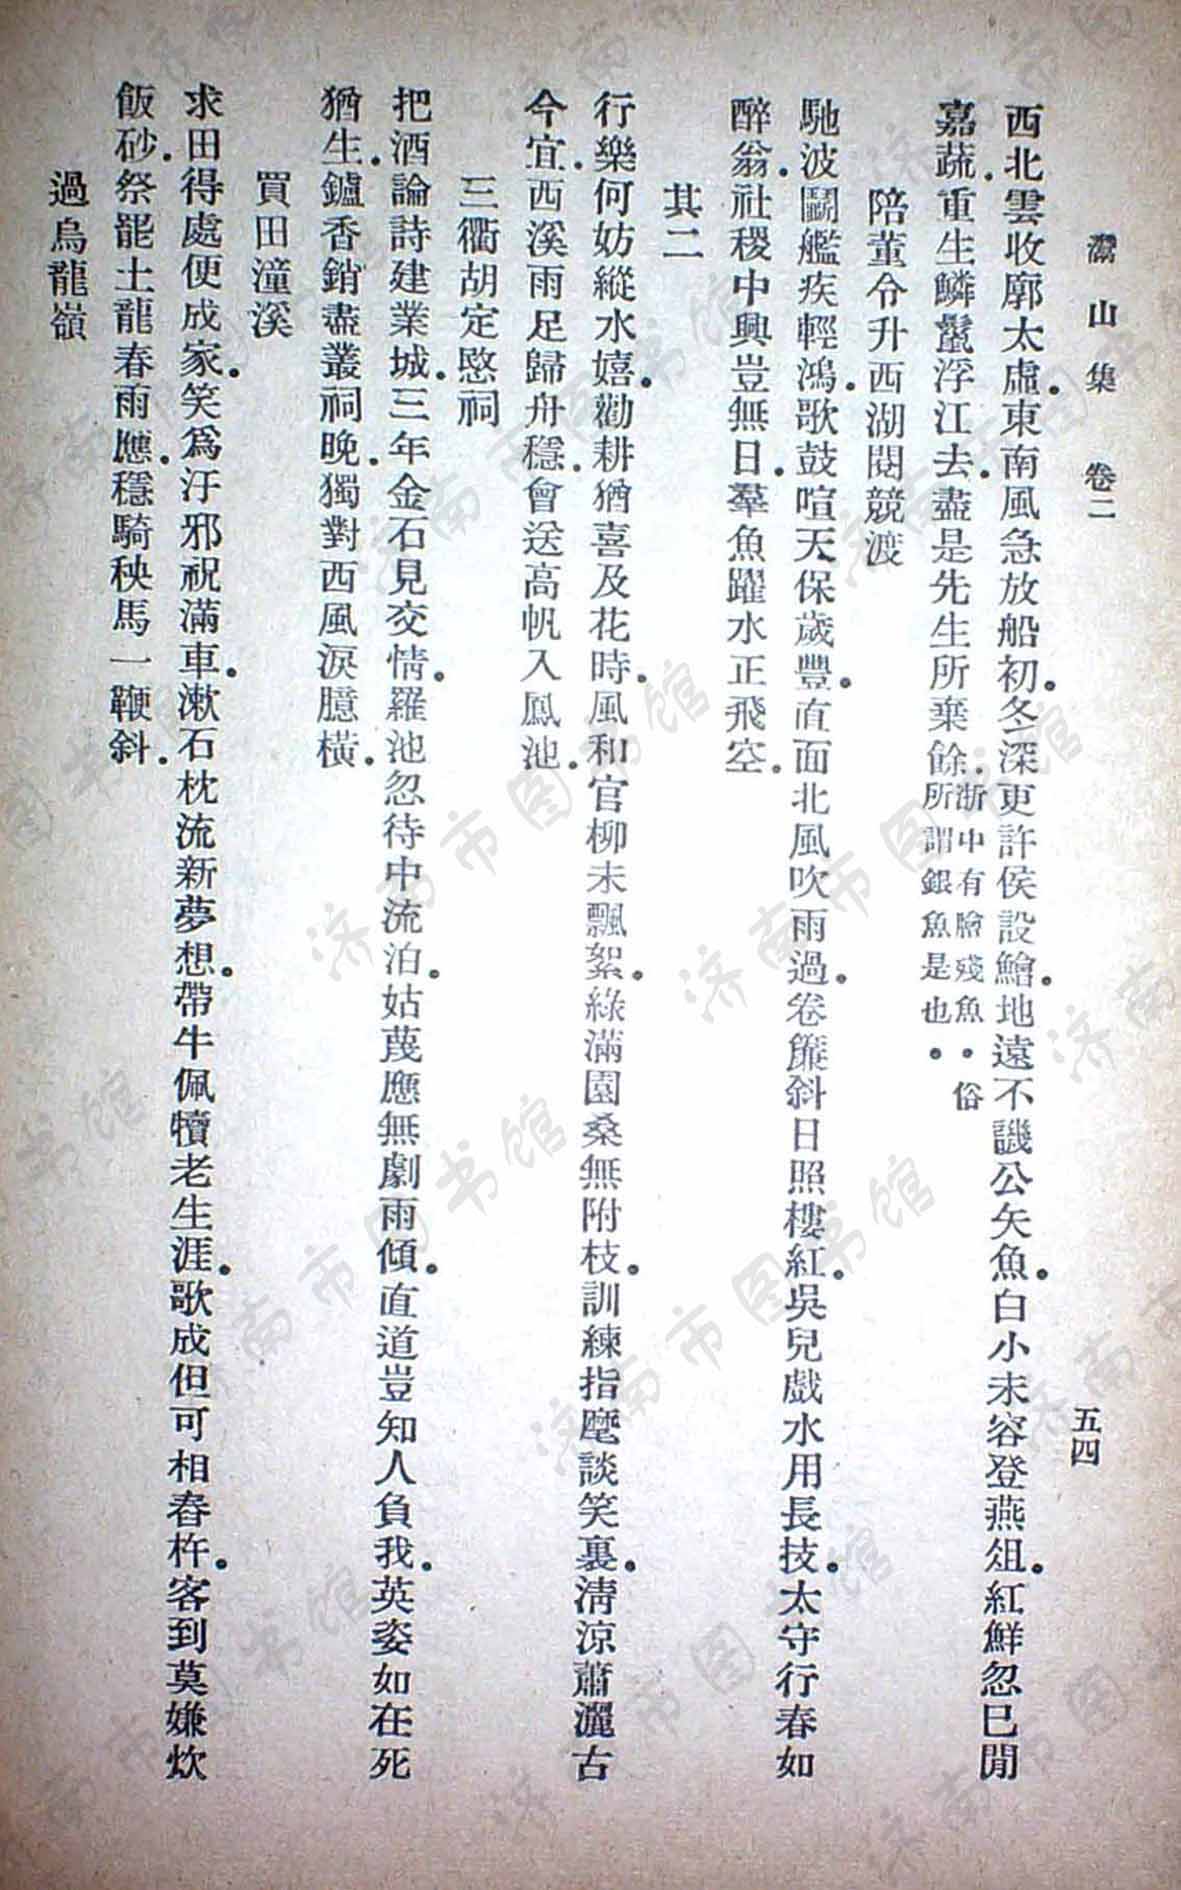 灊山集 卷二 五四
西北雲收廓太虛。東南風急放船初。冬深更許侯設鱠。地遠不譏公矢魚。白小未容登燕俎。紅鮮忽已閒
嘉蔬。重生鱗鬣浮江去。盡是先生所棄餘。浙中有膾殘魚。俗所謂銀魚是也。
陪董令升西湖閱競渡
馳波鬬艦疾輕鴻。歌鼓喧天保歲豐。直面北風吹雨過。卷簾斜日照樓紅。吳兒戲水用長技。太守行春如
醉翁。社稷中興豈無日。羣魚躍水正飛空。
其二
行樂何妨縱水嬉。勸耕猶喜及花時。風和官柳未飄絮。綠滿園桑無附枝。訓練指麾談笑裏。清涼蕭灑古
今宜。西溪雨足歸舟穩。會送高帆入鳳池。
三衢胡定愍祠
把酒論詩建業城。三年金石見交情。羅池忽待中流泊。姑蔑應無劇雨傾。直道豈知人負我。英姿如在死
猶生。鑪香銷盡叢祠晚。獨對西風淚臆橫。
買田潼溪
求田得處便成家。笑爲汙邪祝滿車。漱石枕流新夢想。帶牛佩犢老生涯。歌成但可相舂杵。客到莫嫌炊
飯砂。祭罷土龍春雨應。穩騎秧馬一鞭斜。
過烏龍嶺